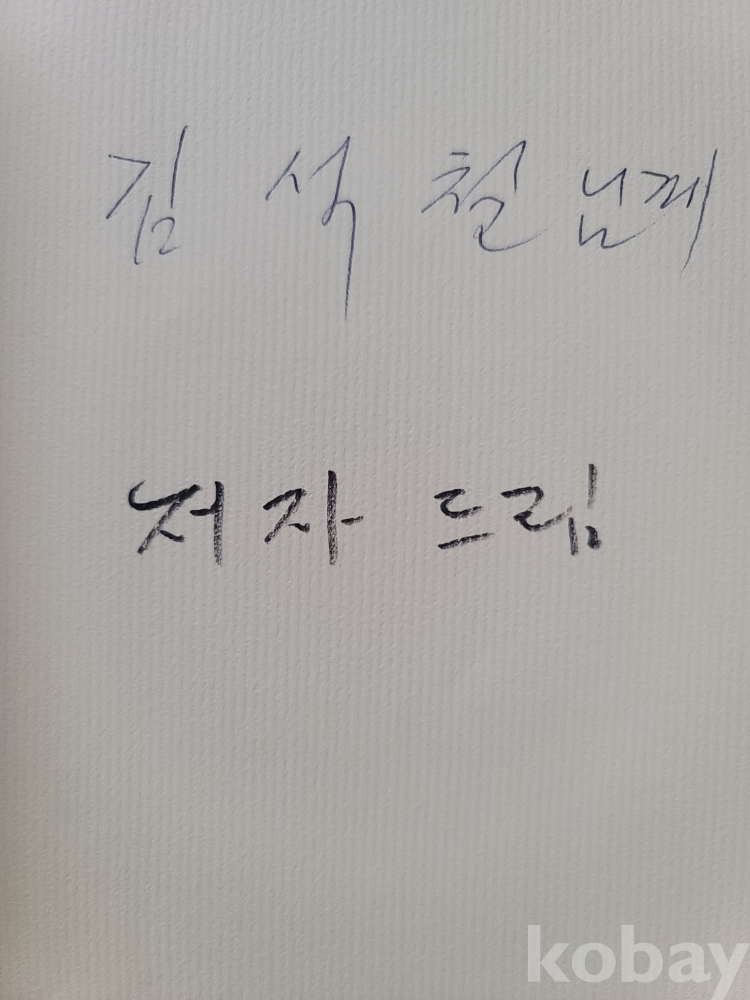 김 석 철 님께
저자 드림
kobay